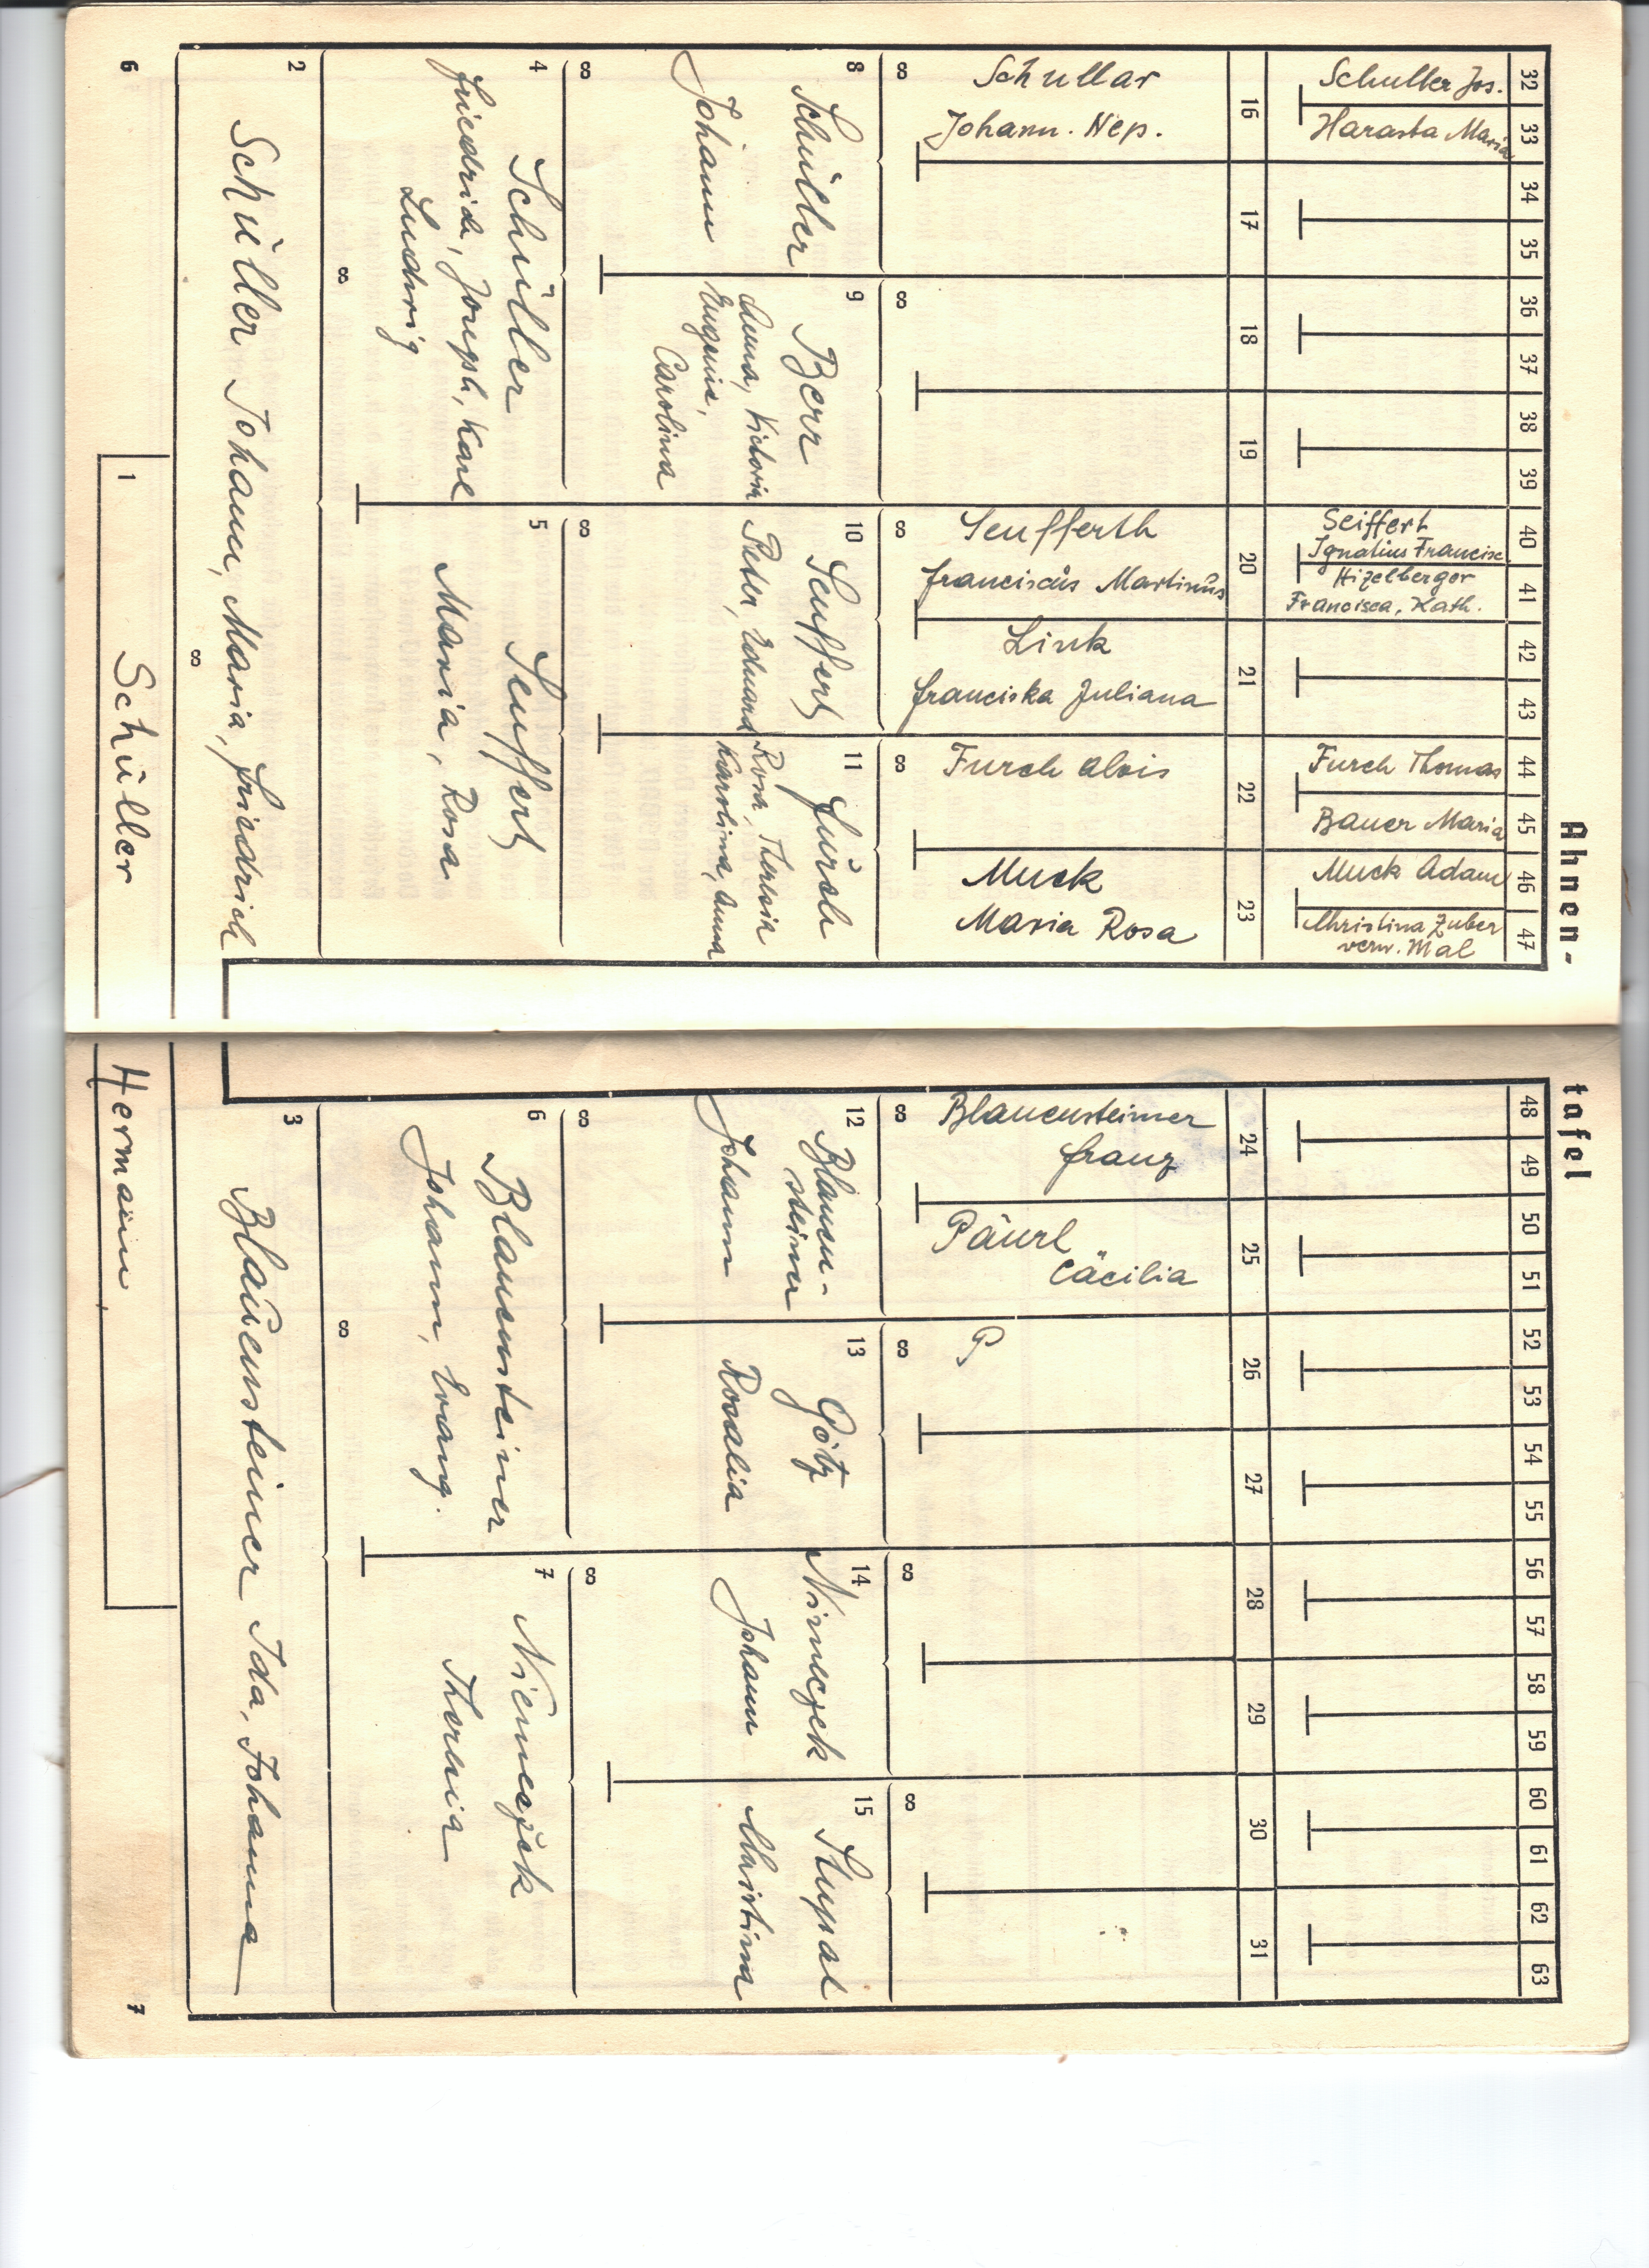 Ahnen-tafel
32 33 34 35 36 37 38 39 40 41 42 43 44 45 46 47 48 49 50 51 52 53 54 55 56 57 58 59 60 61 62 63
Schuller Jos.
Harasta Maria
Seiffert
Ignatius Francisc
Hizelberger
Francisca, Kath.
Furch Thomas
Bauer Maria
Muck Adam
Christina Zuber
verw. Mal
16 17 18 19 20 21 22 23 24 25 26 27 28 29 30 31
Schullar
Johann. Nep.
Seufferth
Franciscus Martinus
Link
Franciska Juliana
Furch Alois
Muck
Maria Rosa
Blauensteiner
Franz
Päurl
Cäcilia
P
8
Schüller
Johann
9
Berr
Anna, Victoria
Eugenie,
Carolina
10
Seuffert
Peter, Eduard
11
Furch
Rosa, Theresia
Karolina, Anna
12
Blauen-
steiner
Johann
13
Götz
Rosalia
14
Nimeczek
Johann
15
Stupal
Christina
4
Schüller
Friedrich, Joseph, Karl
Ludwig
5
Seuffert
Maria, Rosa
6
Blauensteiner
Johann, Evang.
7
Niemeczek
Theresia
2
Schüller Johann, Maria, Friedrich
3
Blauensteiner Ida, Johanna
1
Schüller Hermann
6
7